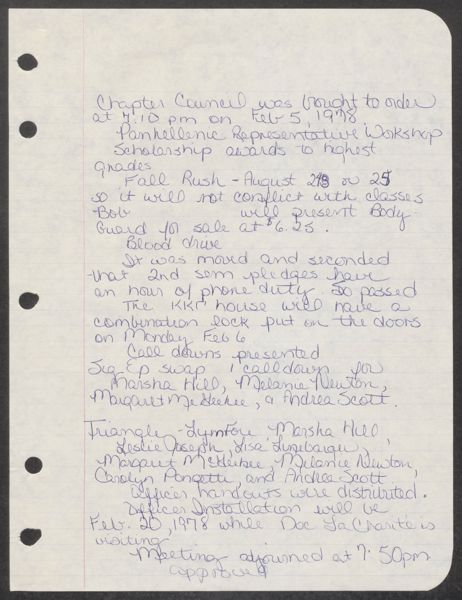 Chapter Council was bought to order
at 7:10 pm on Feb 5, 1978
Panhellenic Representative Workshop
Scholarship awards to highest
grades
Fall Rush - August or 25
so it will not conflict with classes
Bob will present Body
Guard for sale at $6.25.
Blood drive
It was moved and seconded
that 2nd sem pledges have
an hour of phone duty. So passed
The KKΓ house will have a
combination lock put on the doors
on Monday Feb 6
Call downs presented
Sig Ep swap 1 calldown for
Marsha Hill, Melanie Newton,
Margaret McGehee, a Andrea Scott.
Triangle - Marsha Hill,
Leslie Joseph, Lisa
Margaret McGehee, Melanie Newton,
Carolyn and Andrea Scott
Officer handouts were distributed.
Officer Installation will be
Feb. 20, 1978 while Doc LaCharite is
visiting.
Meeting adjourned at 7:50pm
approved